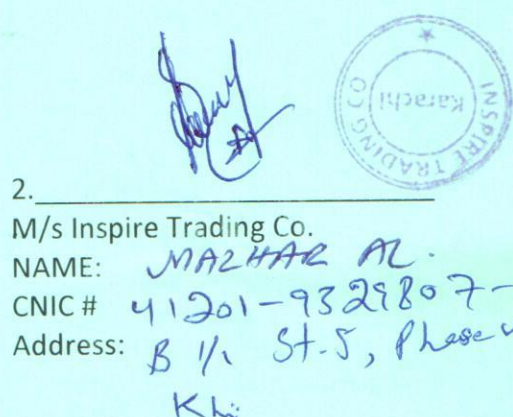 INSPIRE TRADING CO
Karachi
2.
M/s Inspire Trading Co.
NAME: MAZHAR AL.
CNIC # 41201-9329807-
Address: B 1/1 St-5, Phase
Khi